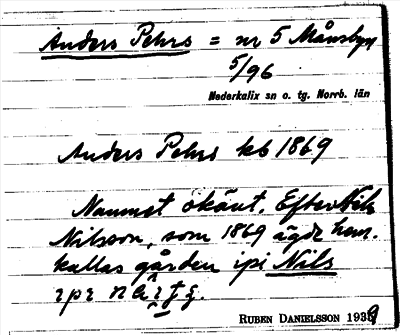 Anders Pehrs = nr 5 Månsbyn
5/96
Nederkalix sn o. tg. Norrb. län
Anders Pehrs kb 1869
Namnet okänt. Efter Nils
Nilsson, som 1869 ägde hem.
kallas gården ipi Nils
RUBEN DANIELSSON 1939